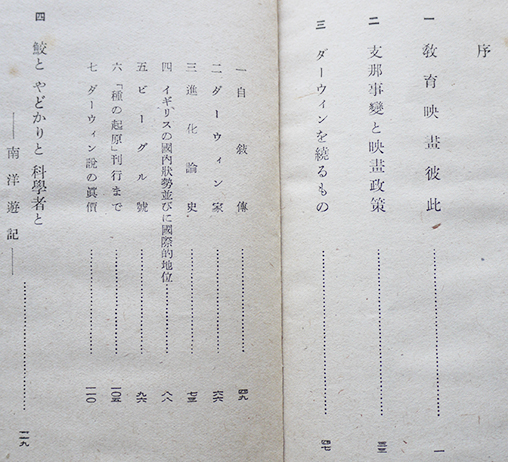 序
一 教育映畫彼此 一
二 支那事變と映畫政策 三三
三 ダーウィンを繞るもの 四七
一 自敍傳 四九
二 ダーウィン家 六六
三 進化論史 七三
四 イギリスの國內狀勢並びに國際的地位 八八
五 ビーグル號 九六
六 「種の起原」刊行まで 一〇五
七 ダーウィン說の眞價 一一〇
四 鮫とやどかりと科學者と
――南洋遊記―― 一一九